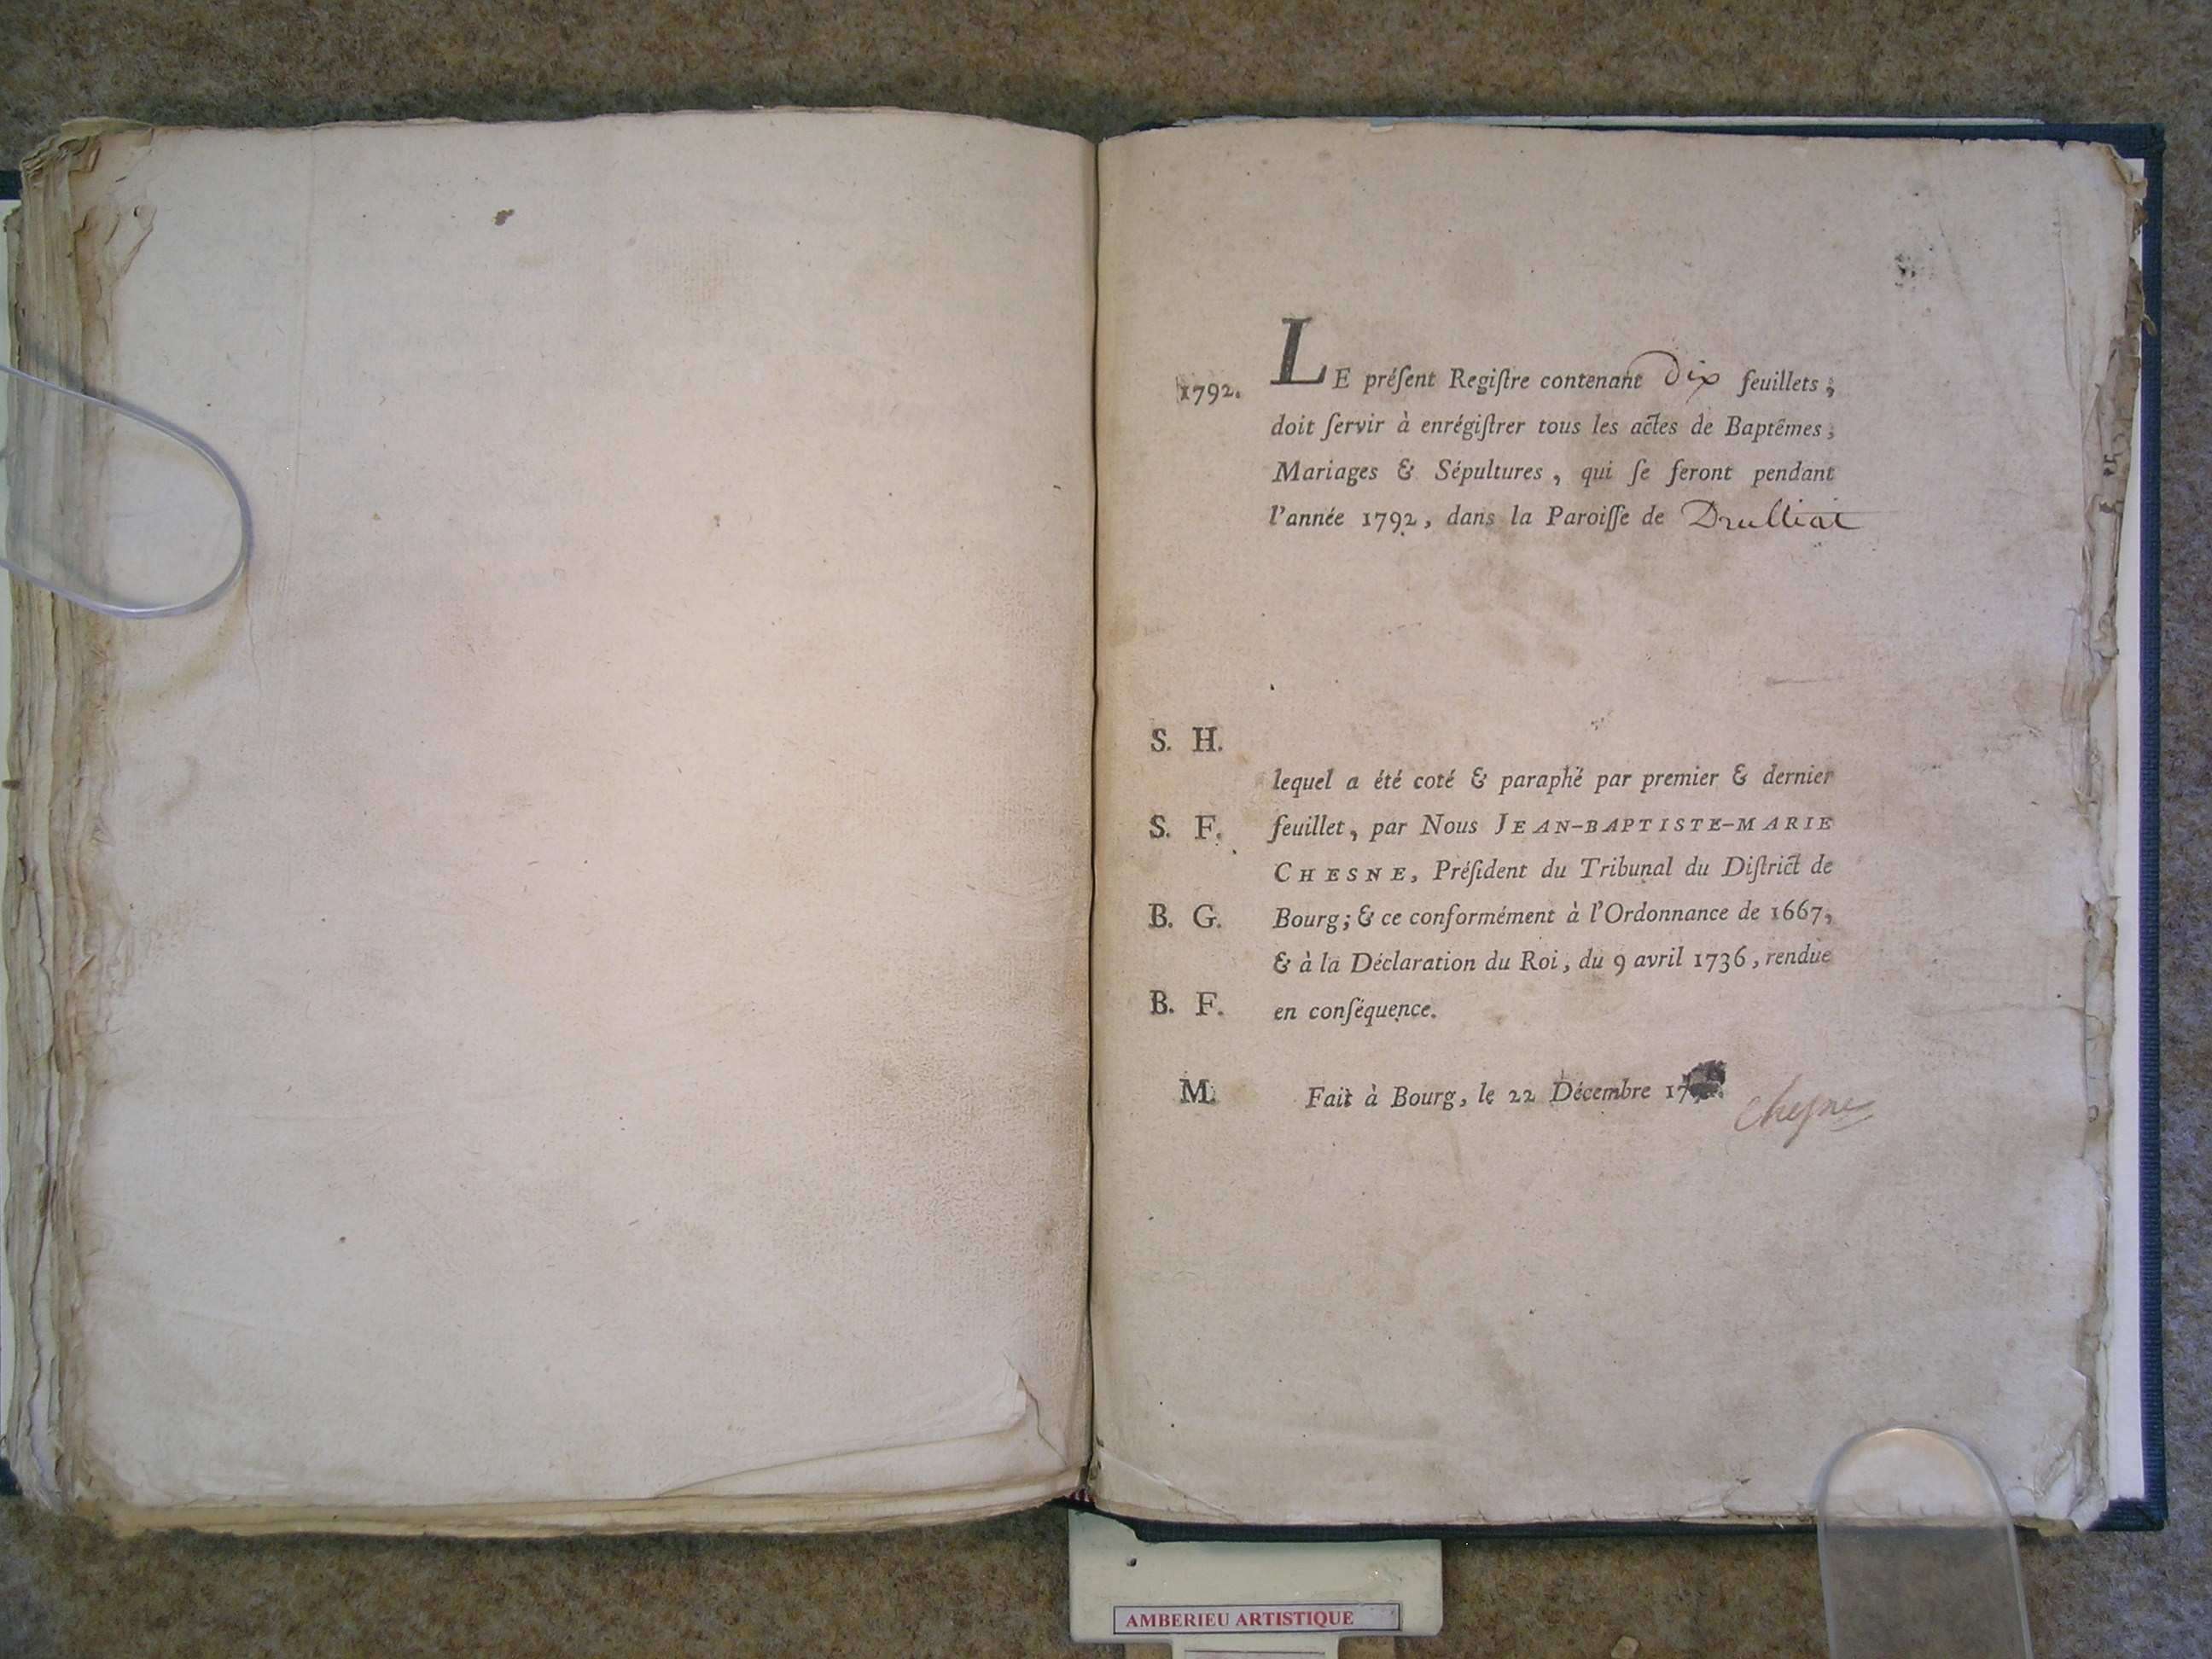 1792. LE préſent Regiſtre contenant Dix feuillets,
doit ſervir à enrégiſtrer tous les actes de Baptêmes,
Mariages & Sépultures, qui ſe feront pendant
l'année 1792, dans la Paroiſſe de Drulliat
S. H.
lequel a été coté & paraphé par premier & dernier
S. F. feuillet, par Nous JEAN-BAPTISTE-MARIE
CHESNE, Préſident du Tribunal du Diſtrict de
B. G. Bourg; & ce conformément à l'Ordonnance de 1667,
& à la Déclaration du Roi, du 9 avril 1736, rendue
B. F. en conſéquence.
M. Fait à Bourg, le 22 Décembre
Chesne
AMBERIEU ARTISTIQUE